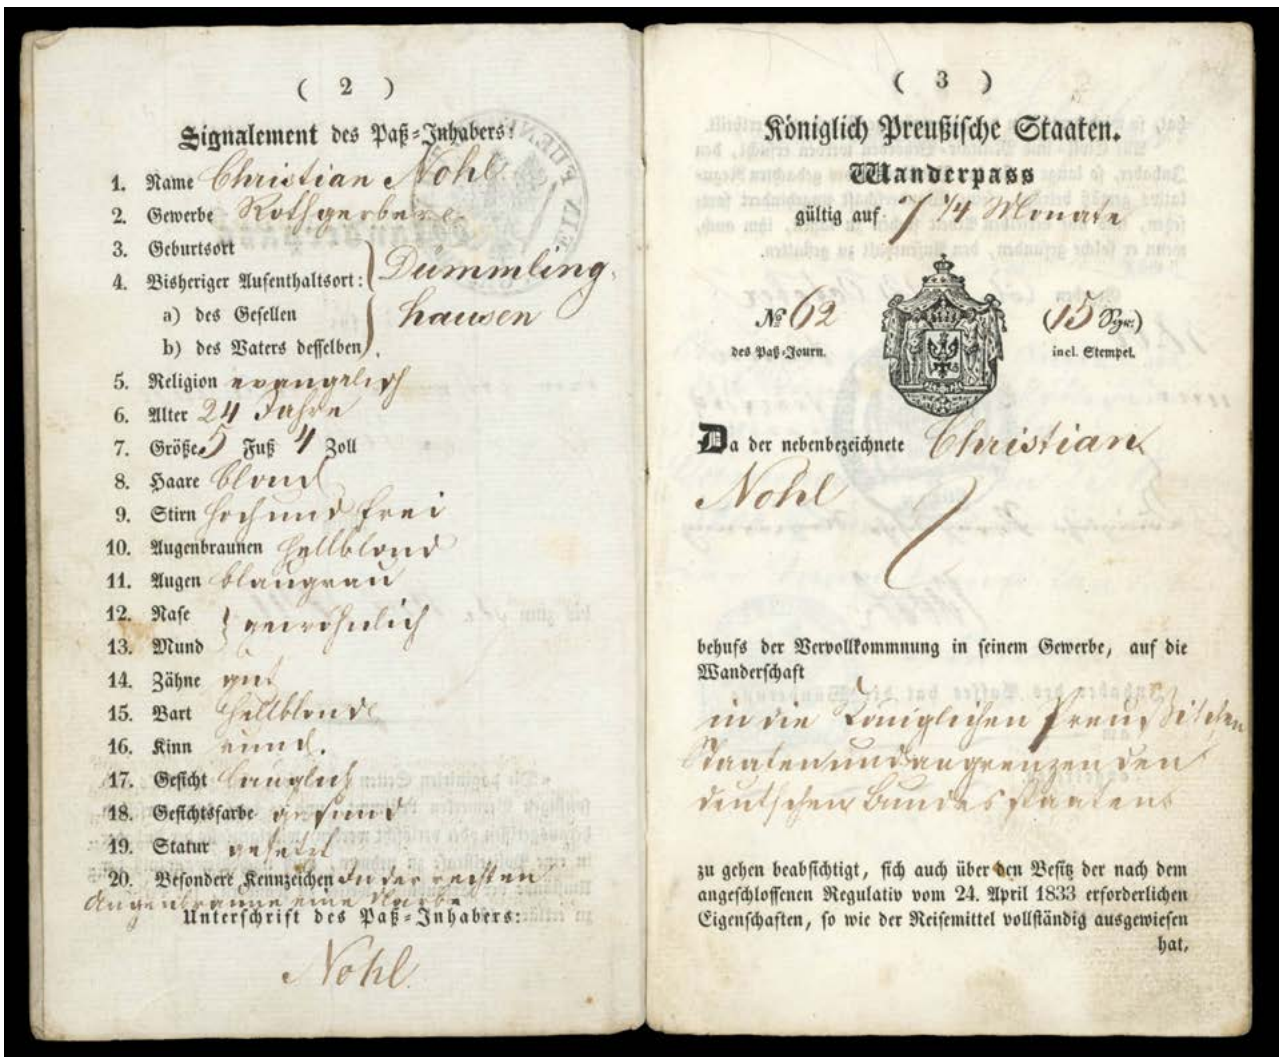 ( 2 )
Signalement des Paß-Inhabers:
1. Name Christian Nohl
2. Gewerbe Rothgerber
3. Geburtsort
4. Bisheriger Aufenthaltsort: Dümmling
a) des Gesellen hausen
b) des Vaters desselben
5. Religion evangelisch
6. Alter 24 Jahre
7. Größe 5 Fuß 4 Zoll
8. Haare blond
9. Stirn hoch und frei
10. Augenbraunen hellblond
11. Augen blaugrau
12. Nase
gewöhnlich
13. Mund
14. Zähne gut
15. Bart hellblond
16. Kinn rund.
17. Gesicht länglich
18. Gesichtsfarbe gesund
19. Statur gesetzt
20. Besondere Kennzeichen In der rechten
Augenbraune eine Narbe
Unterschrift des Paß-Inhabers:
Nohl
( 3 )
Königlich Preußische Staaten.
Wanderpass
gültig auf 7 1/4 Monate
№ 62 (15 Sgr.)
des Paß-Journ. incl. Stempel.
Da der nebenbezeichnete Christian
Nohl
behufs der Vervollkommnung in seinem Gewerbe, auf die
Wanderschaft
in die Königlichen Preußischen
Staaten und angrenzenden
deutschen Bundesstaaten
zu gehen beabsichtigt, sich auch über den Besitz der nach dem
angeschlossenen Regulativ vom 24. April 1833 erforderlichen
Eigenschaften, so wie der Reisemittel vollständig ausgewiesen
hat,